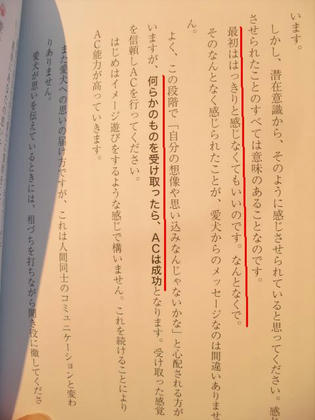 います。
しかし、潜在意識から、そのように感じさせられていると思ってください。感
させられたことのすべては意味のあることなのです。
最初ははっきりと感じなくてもいいのです。なんとなくで。
そのなんとなく感じられたことが、愛犬からのメッセージなのは間違いありませ
ん。
よく、この段階で「自分の想像や思い込みなんじゃないかな」と心配される方が
いますが、何らかのものを受け取ったら、ACは成功となります。受け取った感覚
を信頼しACを行ってください。
はじめはイメージ遊びをするような感じで構いません。これを続けることにより
AC能力が高っていきます。
また愛犬への思いの届け方ですが、これは人間同士のコミュニケーションと変わ
りありません。
愛犬が思いを伝えているときには、相づちを打ちながら聞き役に徹してくださ